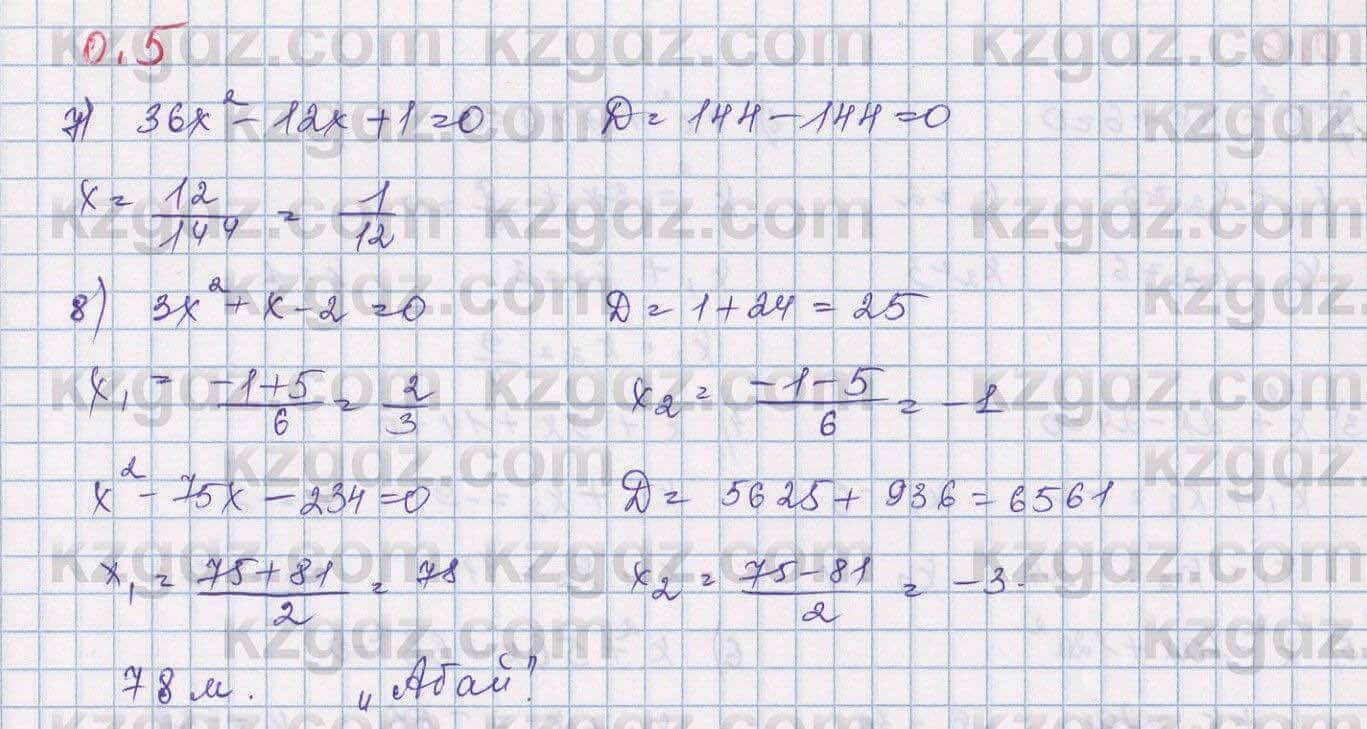 0.5
7) 36x² - 12x + 1 = 0 D = 144 - 144 = 0
x = 12/144 = 1/12
8) 3x² + x - 2 = 0 D = 1 + 24 = 25
x₁ = (-1+5)/6 = 2/3 x₂ = (-1-5)/6 = -1
x² - 75x - 234 = 0 D = 5625 + 936 = 6561
x₁ = (75+81)/2 = 78 x₂ = (75-81)/2 = -3.
78 м. „Абай".